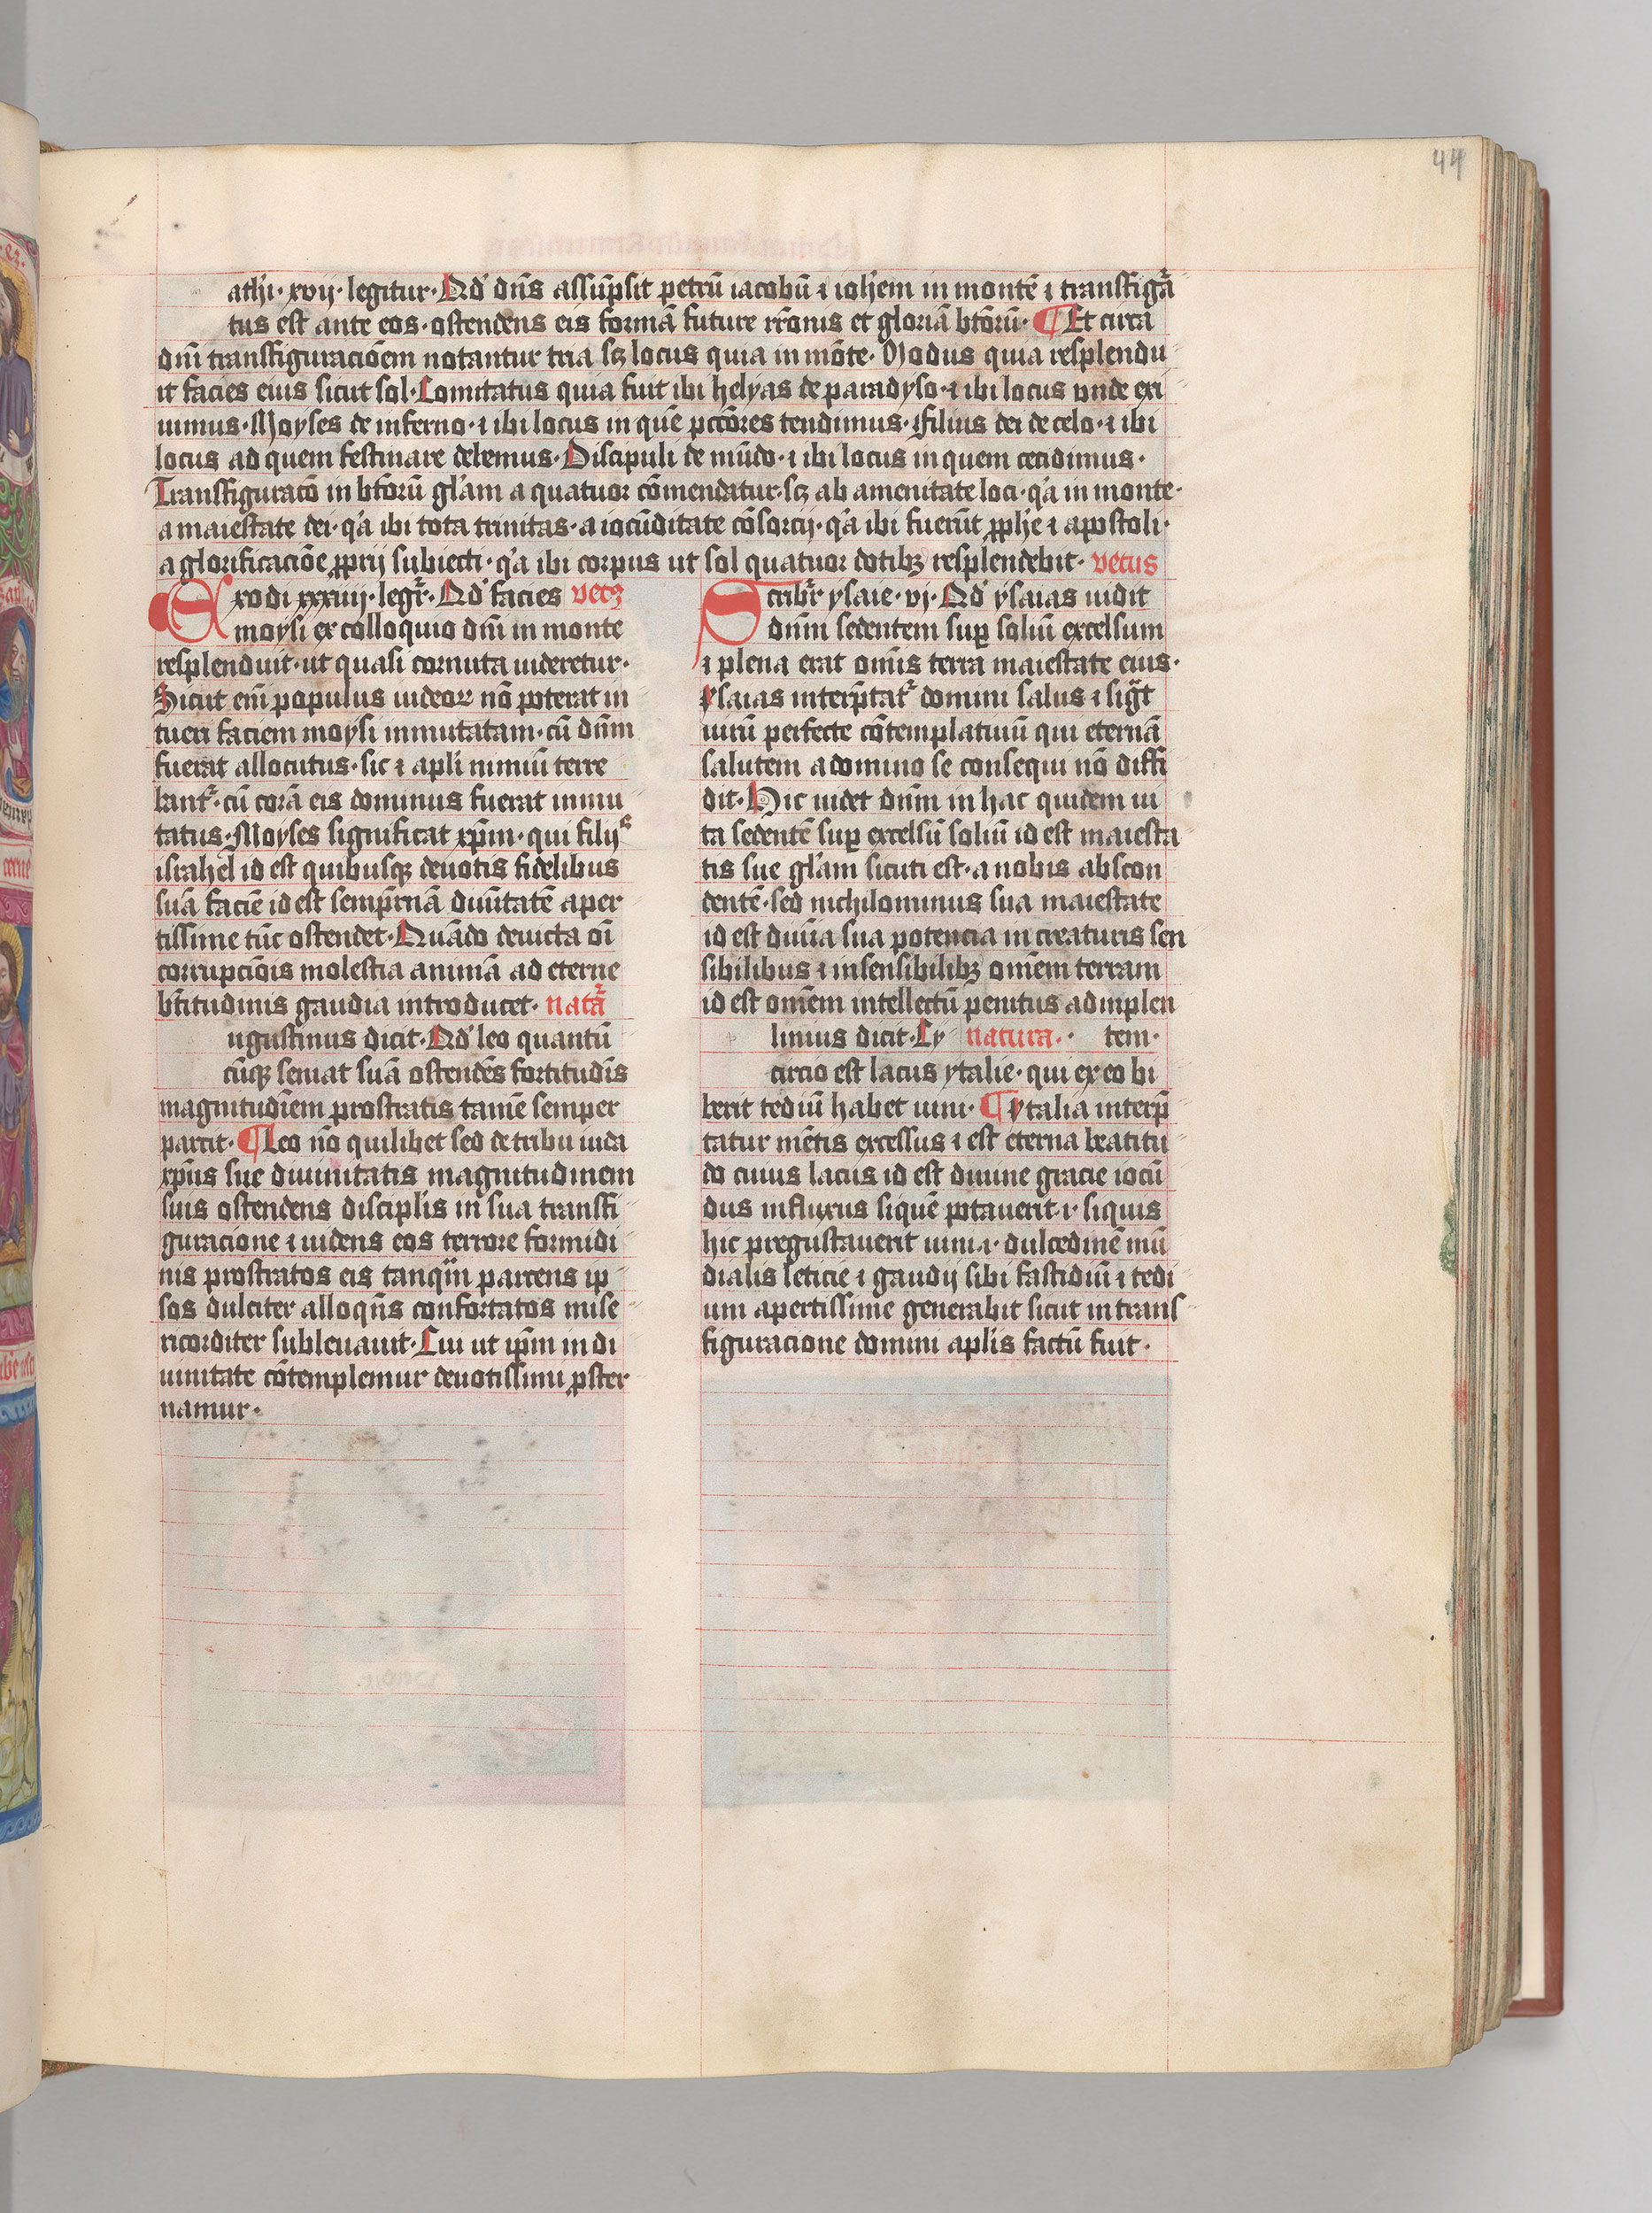 44
athi · xvij · legitur · Qd' dn̄s assūpsit petrū iacobū ⁊ ioh'em in montē ⁊ transfigᷓa
tus est ante eos · ostendens eis formā future rr̄onis et gloriā bt̄orū · ¶ Et circa
dn̄i transfiguraciōem notantur tria sꝫ locus quia in mōte · Modus quia resplendu
it facies eius sicut sol · Comitatus quia fuit ibi helyas de paradyso · ⁊ ibi locus vnde exi
uimus · Moyses de inferno · ⁊ ibi locus in quē pctōres tendimus · Filius dei de celo · ⁊ ibi
locus ad quem festinare debemus · Discipuli de mūdo · ⁊ ibi locus in quem cecidimus ·
Transfiguratō in bt̄orū gl'am a quatuor cōmendatur · sꝫ ab amenitate loci · q'a in monte ·
a maiestate dei · q'a ibi tota trinitas · a iocūditate cōsorcij · q'a ibi fuerūt ꝓph'e ⁊ apostoli ·
a glorificaciōe ꝓprij subiecti · q'a ibi corpus ut sol quatuor dotibꝫ resplendebit · vetus
Exodi xxxiiij · legr̄ · Qd' facies vetꝫ
moysi ex colloquio dn̄i in monte
resplenduit · ut quasi cornuta uideretur ·
Sicut eni̅ populus iudeoꝝ nō poterat in
tueri faciem moysi inmutatam · cū dn̄m
fuerat allocutus · sic ⁊ apl̄i nimiū terre
bant᷑ · cū corā eis dominus fuerat inmu
tatus · Moyses significat xp̄m · qui filijs
israhel id est quibusqꝫ deuotis fidelibus
suā faciē id est semp̄rnā diuītatē aper
tissime tūc ostendet · Quādo deuicta oi̅
corrupciōis molestia animā ad eterne
bt̄itudinis gaudia introducet · natᷓa
ugustinus dicit · Qd' leo quantū
cūqꝫ seuiat suā ostendēs fortitudīs
magnitudīem prostratis tamē semper
parcit · ¶ Leo nō quilibet sed de tribu iuda
xp̄us sue diuinitatis magnitudinem
suis ostendens discipl̄is in sua transfi
guracione ⁊ uidens eos terrore formidi
nis prostratos eis tanqᷓm parcens ip
sos dulciter alloqn̄s confortatos mise
ricorditer subleuauit · Cui ut ip̄m in di
uinitate cōtemplemur deuotissimi ꝓster
namur ·
Scribr̄ ysaie · vj · Qd' ysaias uidit
dn̄m sedentem suꝑ soliū excelsum
⁊ plena erat om̄is terra maiestate eius ·
ysaias interp̄tat᷑ domini salus ⁊ sigᷓt
uirū perfecte cōtemplatiuū qui eternā
salutem a domino se consequi nō diffi
dit · Hic uidet dn̄m in hac quidem ui
ta sedentē suꝑ excelsū soliū id est maiesta
tis sue gl'am sicuti est · a nobis abscon
dentē · sed nichilominus sua maiestate
id est diuīa sua potencia in creaturis sen
sibilibus ⁊ insensibilibꝫ om̄em terram
id est om̄em intellectū penitus adinplen
linius dicit · Cy natura · tem ·
circio est lacus ytalie · qui ex eo bi
berit tediū habet uini · ¶ ytalia interp̄
tatur mētis excessus ⁊ est eterna beatitu
do cuius lacus id est diuine gracie iocū
dus influxus siquē potauerit · i · siquis
hic pregustauerit uini · i · dulcedinē mū
dialis leticie ⁊ gaudij sibi fastidiū ⁊ tedi
um apertissime generabit sicut in trans
figuracione domini apl̄is factū fuit ·